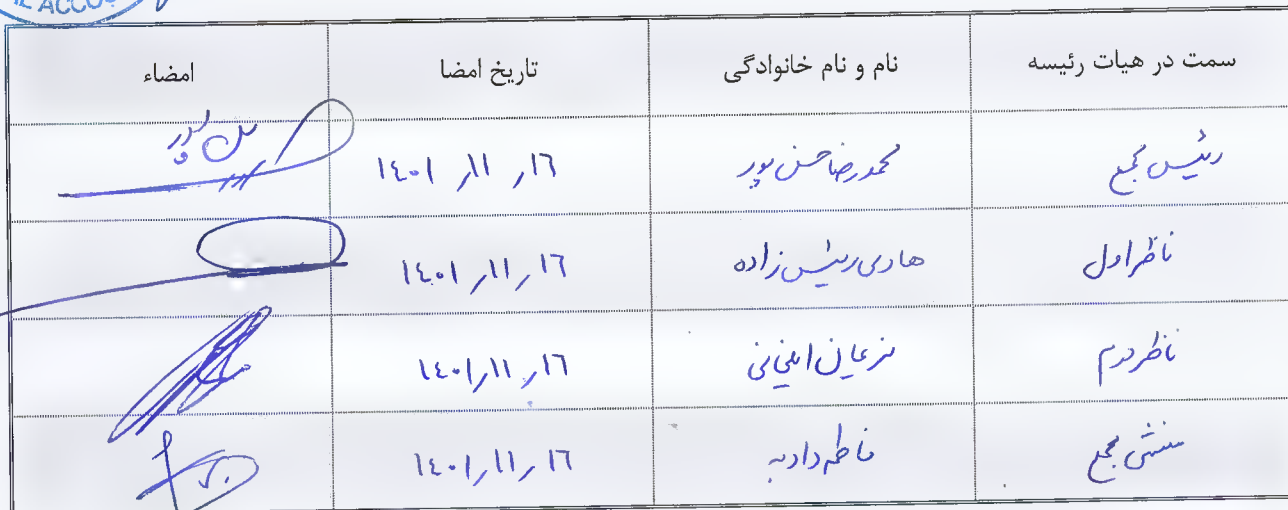 IL ACCOU
سمت در هیات رئیسه نام و نام خانوادگی تاریخ امضا امضاء
رئیس مجمع محمدرضا حسن پور ۱۴۰۱٫۱۱٫۱۶
ناظر اول هادی رئیس زاده ۱۴۰۱٫۱۱٫۱۶
ناظر دوم ۱۴۰۱٫۱۱٫۱۶
منشی مجمع فاطمه دادبه ۱۴۰۱٫۱۱٫۱۶